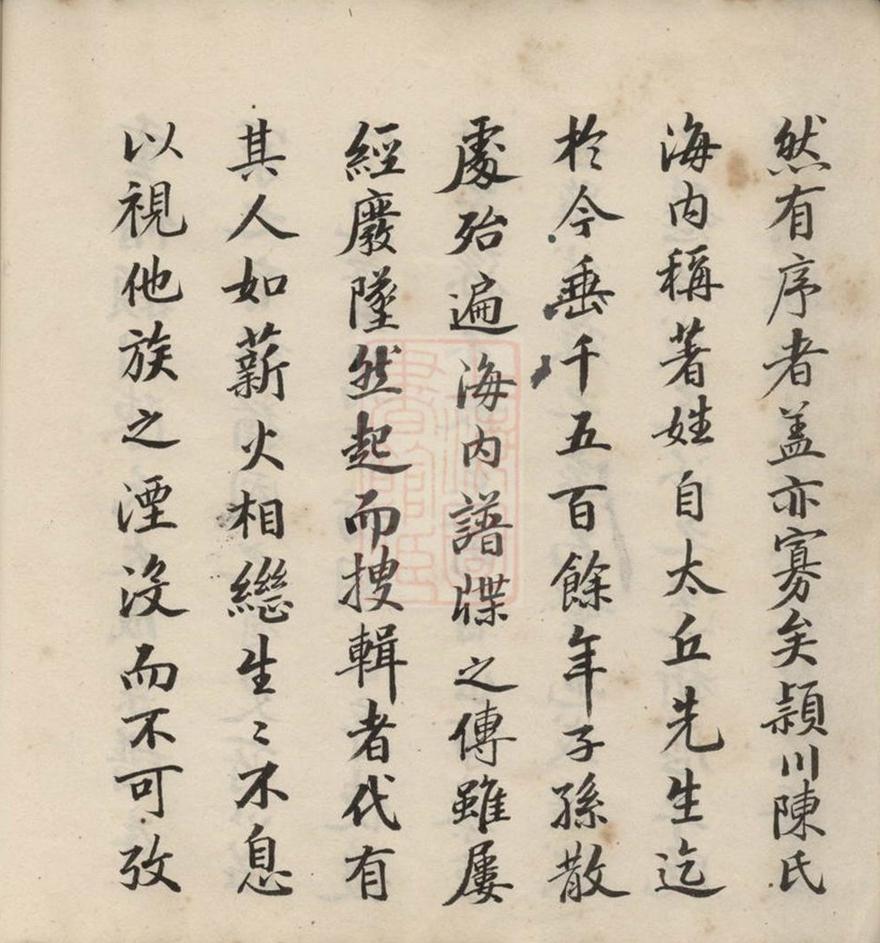 然有序者盖亦寡矣潁川陳氏
海内稱著姓自太丘先生迄
於今垂千五百餘年子孫散
處殆遍海内譜牒之傳雖屢
經廢墜然起而搜輯者代有
其人如薪火相繼生〻不息
以視他族之湮没而不可攷